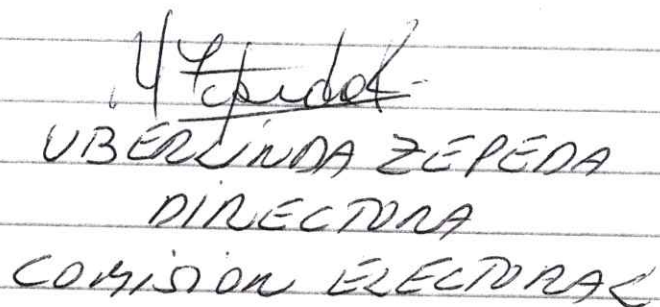 UBERLINDA ZEPEDA
DIRECTORA
COMISION ELECTORAL